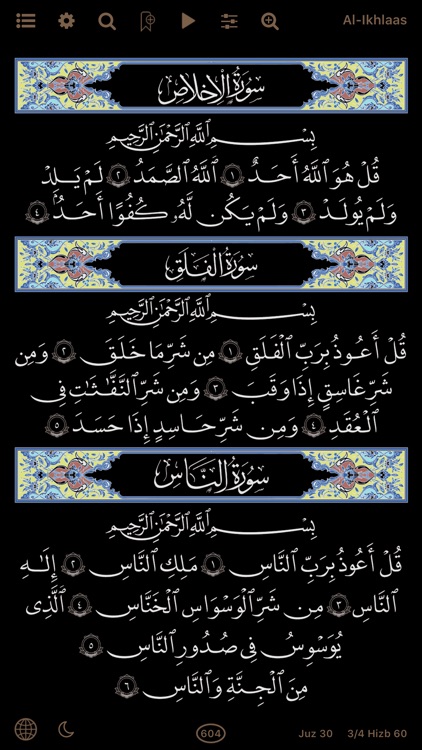 Al-Ikhlaas
سُورَةُ الْإِخْلَاصِ
بِسْمِ ٱللَّهِ ٱلرَّحْمَٰنِ ٱلرَّحِيمِ
قُلْ هُوَ ٱللَّهُ أَحَدٌ ١ ٱللَّهُ ٱلصَّمَدُ ٢ لَمْ يَلِدْ
وَلَمْ يُولَدْ ٣ وَلَمْ يَكُن لَّهُۥ كُفُوًا أَحَدٌۢ ٤
سُورَةُ الْفَلَقِ
بِسْمِ ٱللَّهِ ٱلرَّحْمَٰنِ ٱلرَّحِيمِ
قُلْ أَعُوذُ بِرَبِّ ٱلْفَلَقِ ١ مِن شَرِّ مَا خَلَقَ ٢ وَمِن
شَرِّ غَاسِقٍ إِذَا وَقَبَ ٣ وَمِن شَرِّ ٱلنَّفَّٰثَٰتِ فِى
ٱلْعُقَدِ ٤ وَمِن شَرِّ حَاسِدٍ إِذَا حَسَدَ ٥
سُورَةُ النَّاسِ
بِسْمِ ٱللَّهِ ٱلرَّحْمَٰنِ ٱلرَّحِيمِ
قُلْ أَعُوذُ بِرَبِّ ٱلنَّاسِ ١ مَلِكِ ٱلنَّاسِ ٢ إِلَٰهِ
ٱلنَّاسِ ٣ مِن شَرِّ ٱلْوَسْوَاسِ ٱلْخَنَّاسِ ٤ ٱلَّذِى
يُوَسْوِسُ فِى صُدُورِ ٱلنَّاسِ ٥
مِنَ ٱلْجِنَّةِ وَٱلنَّاسِ ٦
604 Juz 30 3/4 Hizb 60